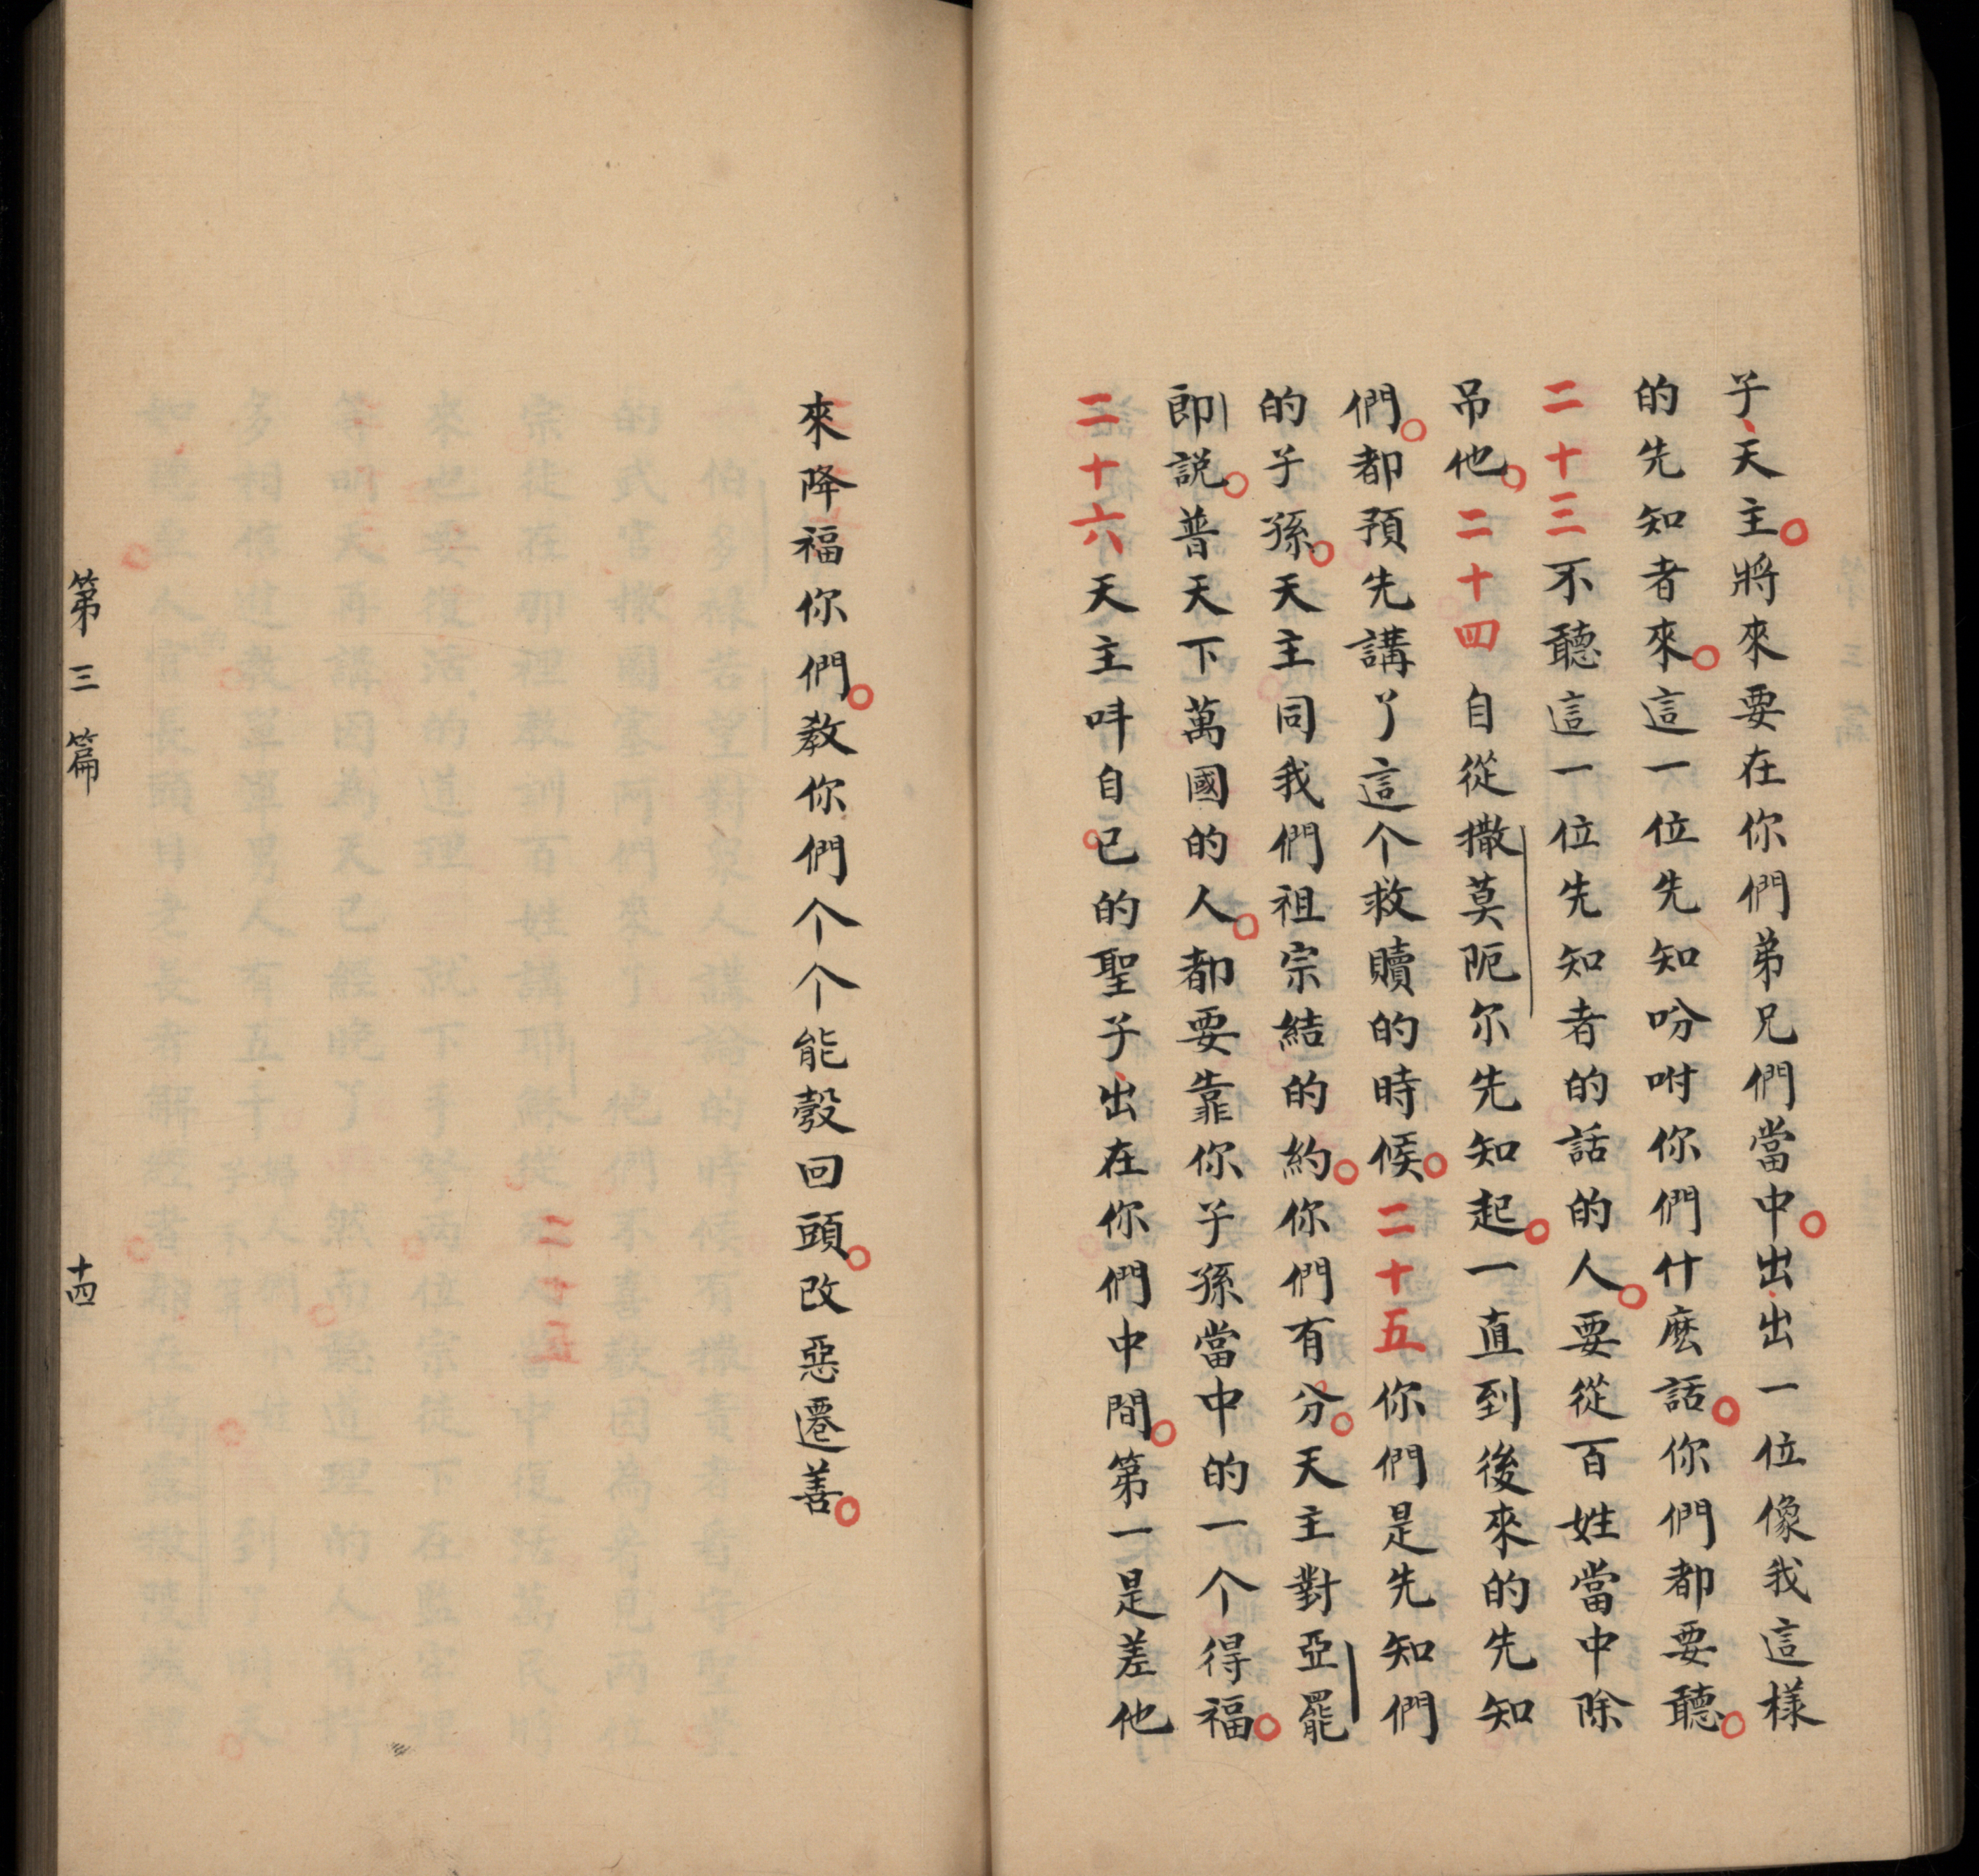 子、天主。將來要在你們弟兄們當中。出、出一位像我這樣
的先知者來。這一位先知吩咐你們什麽話。你們都要聽。
二十三不聽這一位先知者的話的人。要從百姓當中除
吊他。二十四自從撒莫阨尔先知起。一直到後來的先知
們。都預先講了這个救贖的時候。二十五你們是先知們
的子孫。天主同我們祖宗結的約。你們有分。天主對亞罷
郎說。普天下萬國的人。都要靠你子孫當中的一个得福。
二十六天主呌自己的聖子、出在你們中間。第一是差他
來降福你們。教你們个个能彀回頭。改惡遷善。
第三篇
十四